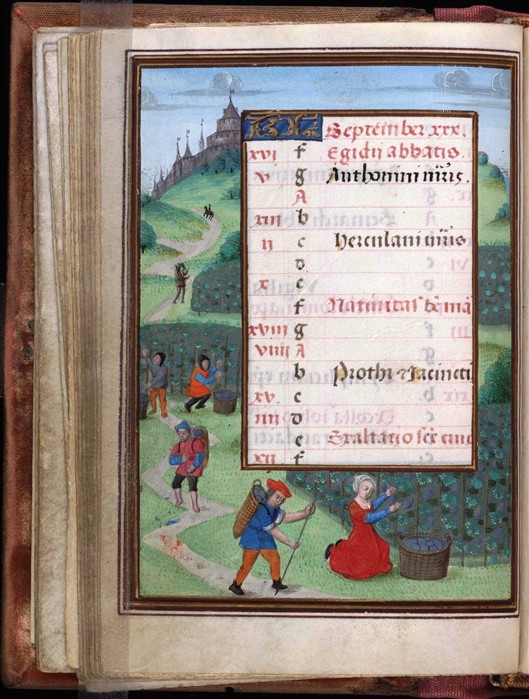 KL September xxx.
xvi f Egidij abbatis.
v g Anthonini mr̄is.
A
xiii b
ii c Herculani mr̄is
d
x e
f Natiuitas bē mā
xviii g
viiii A
b Prothi & Jacincti
xv c
iiii d
e Exaltatio scē cruc
xii f